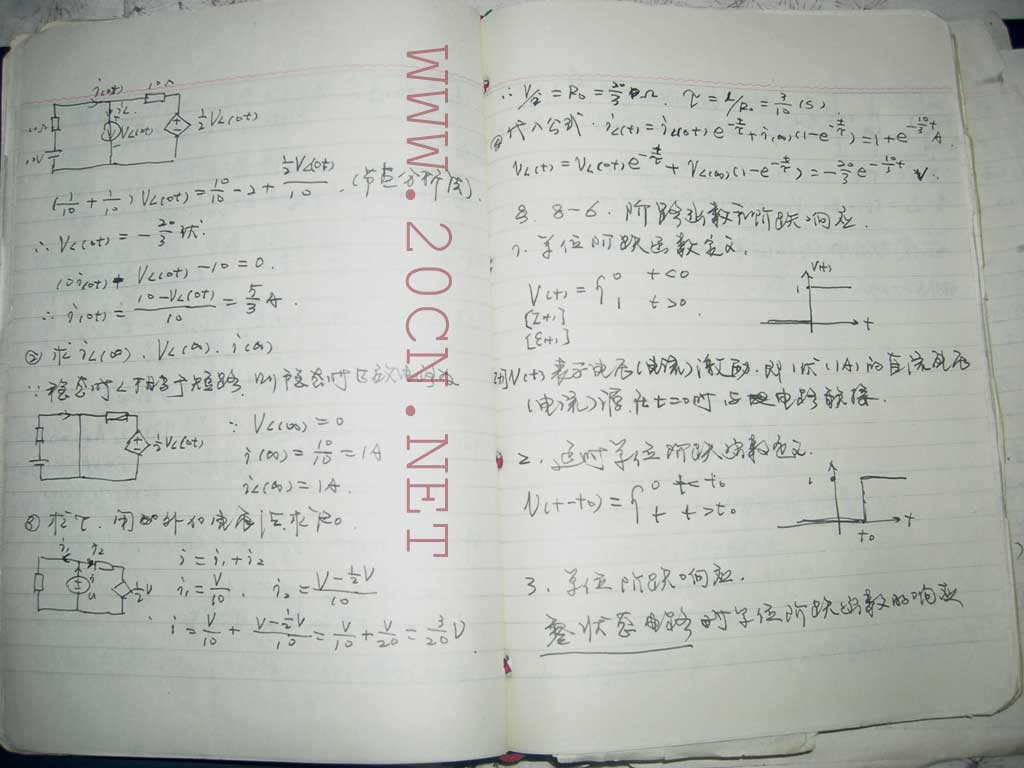 i(0+) 10Ω
iL
VL(0+) ½VL(0+)
10V
(1/10 + 1/10) VL(0+) = 10/10 - 2 + ½VL(0+)/10 . (节点分析法).
∴ VL(0+) = - 20/3 伏.
10i(0+) + VL(0+) - 10 = 0.
∴ i(0+) = 10-VL(0+)/10 = 5/3 A.
② 求 iL(∞). VL(∞). i(∞)
∵ 稳态时L相当于短路. 则稳态时
½VL(0+)
∵ VL(∞) = 0
i(∞) = 10/10 = 1A
iL(∞) = 1A.
③ 求τ, 用外加电压法求R0.
i1 i2
i
u ½V
i = i1 + i2
i1 = V/10 . i2 = V-½V/10
i = V/10 + V-½V/10 = V/10 + V/20 = 3/20 V
WWW.20CN.NET
∴ V/i = R0 = 20/3 Ω. τ = L/R0 = 3/10 (S)
④ 代入公式. iL(t) = iL(0+) e^-t/τ + iL(∞)(1-e^-t/τ) = 1 + e^-10/3t A.
VL(t) = VL(0+) e^-t/τ + VL(∞)(1-e^-t/τ) = -20/3 e^-10/3t V.
8-6. 阶跃函数和阶跃响应.
1. 单位阶跃函数定义.
V(t) = { 0 t<0
1 t>0
[1(t)]
[ε(t)]
V(t)
1
t
用V(t)表示电压(电流)激励, 即1伏(1A)的直流电压
(电流)源, 在t=0时与电路联接.
2. 延时单位阶跃函数定义.
V(t-t0) = { 0 t<t0
t>t0
1
t0 t
3. 单位阶跃响应.
零状态电路对单位阶跃函数的响应